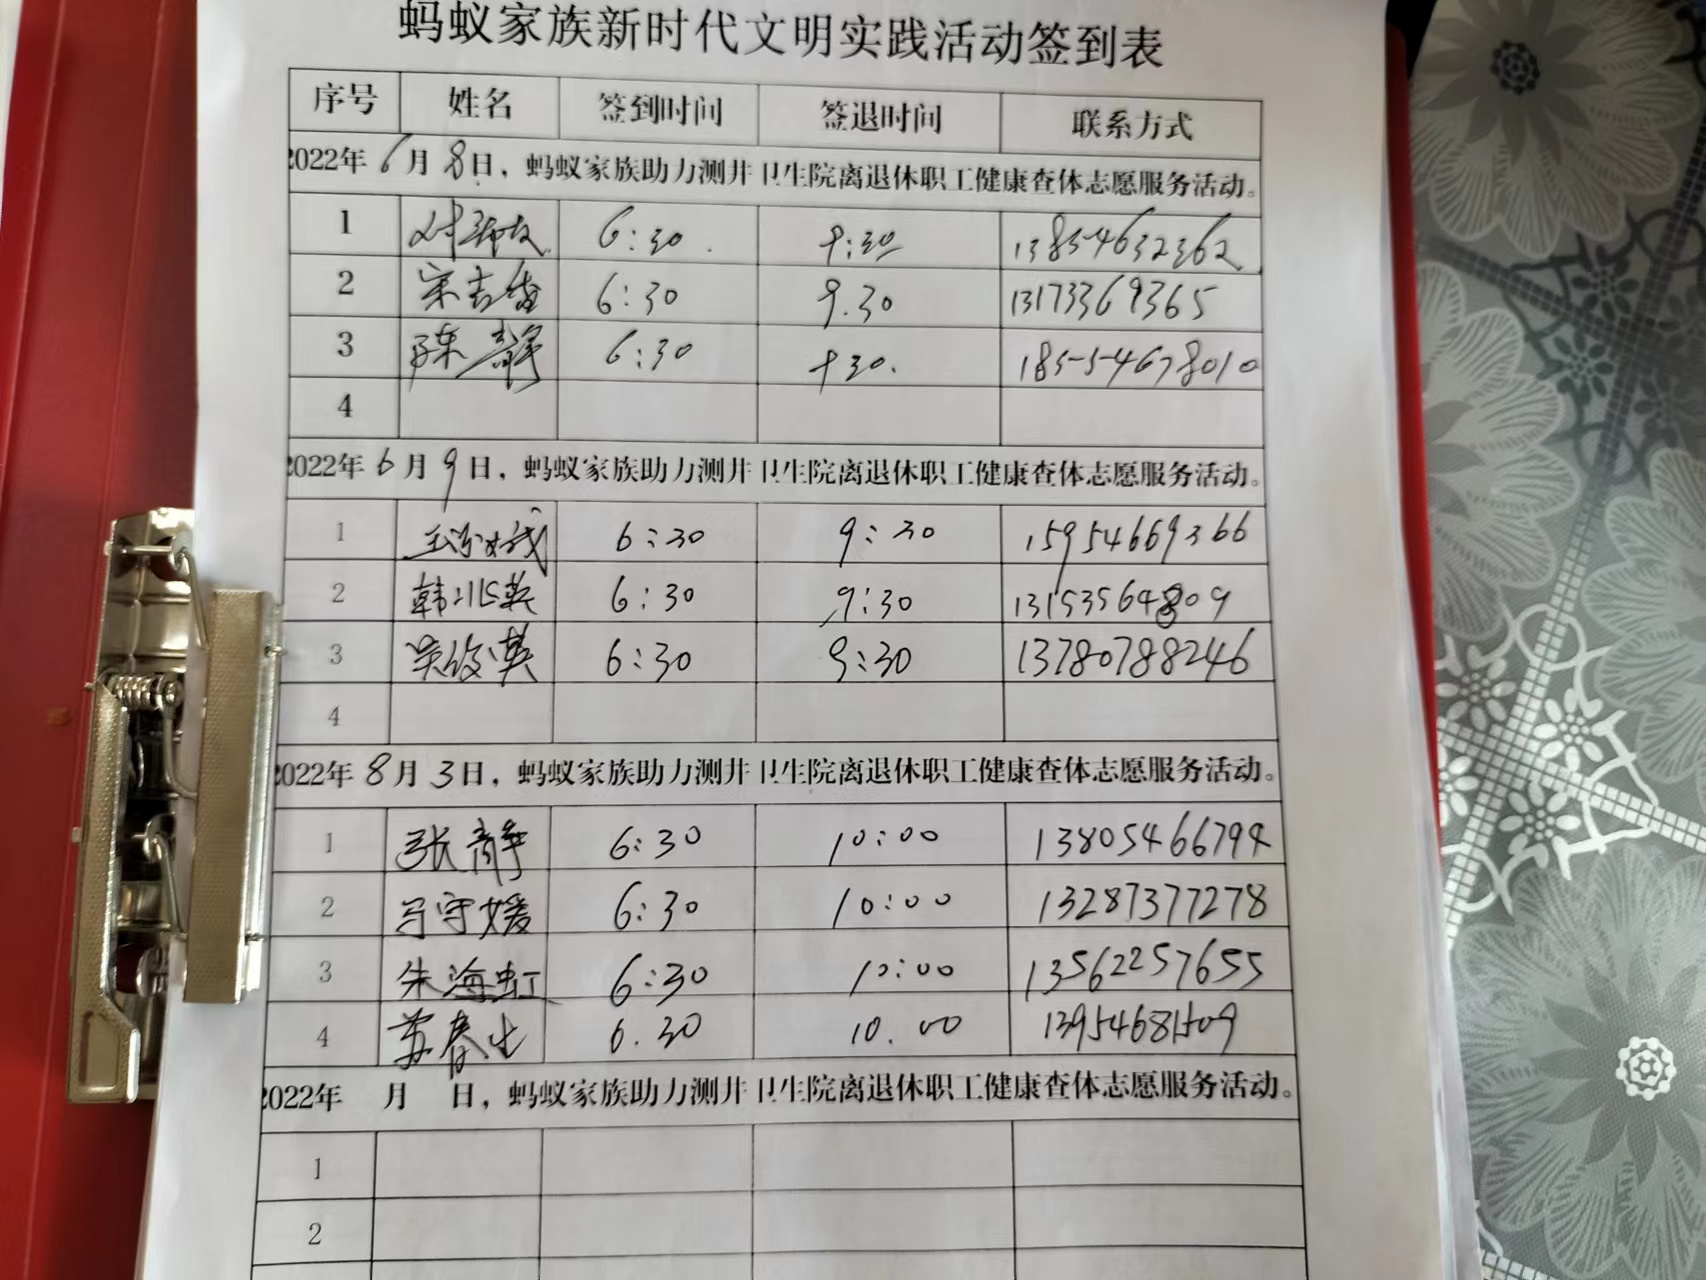 蚂蚁家族新时代文明实践活动签到表
序号 姓名 签到时间 签退时间 联系方式
2022年 6月 8日，蚂蚁家族助力测井卫生院离退休职工健康查体志愿服务活动。
1 6:30 9:30 13854632362
2 宋吉香 6:30 9.30 13173369365
3 陈静 6:30 930. 18554678010
4
2022年 6月 9日，蚂蚁家族助力测井卫生院离退休职工健康查体志愿服务活动。
1 6:30 9:30 15954669366
2 韩业英 6:30 9:30 13153564809
3 吴俊英 6:30 9:30 13780788246
4
2022年 8月 3日，蚂蚁家族助力测井卫生院离退休职工健康查体志愿服务活动。
1 张静 6:30 10:00 13805466794
2 马守媛 6:30 10:00 13287377278
3 朱海虹 6:30 10:00 13562257655
4 苏春 6.30 10.00 13954681509
2022年 月 日，蚂蚁家族助力测井卫生院离退休职工健康查体志愿服务活动。
1
2